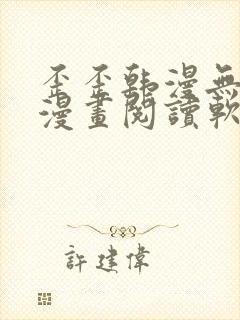 歪歪韩漫無
漫畫閱讀軟
許建偉